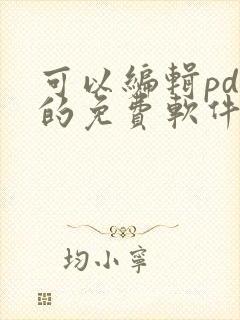 可以編輯pd
的免費軟件
均小寧